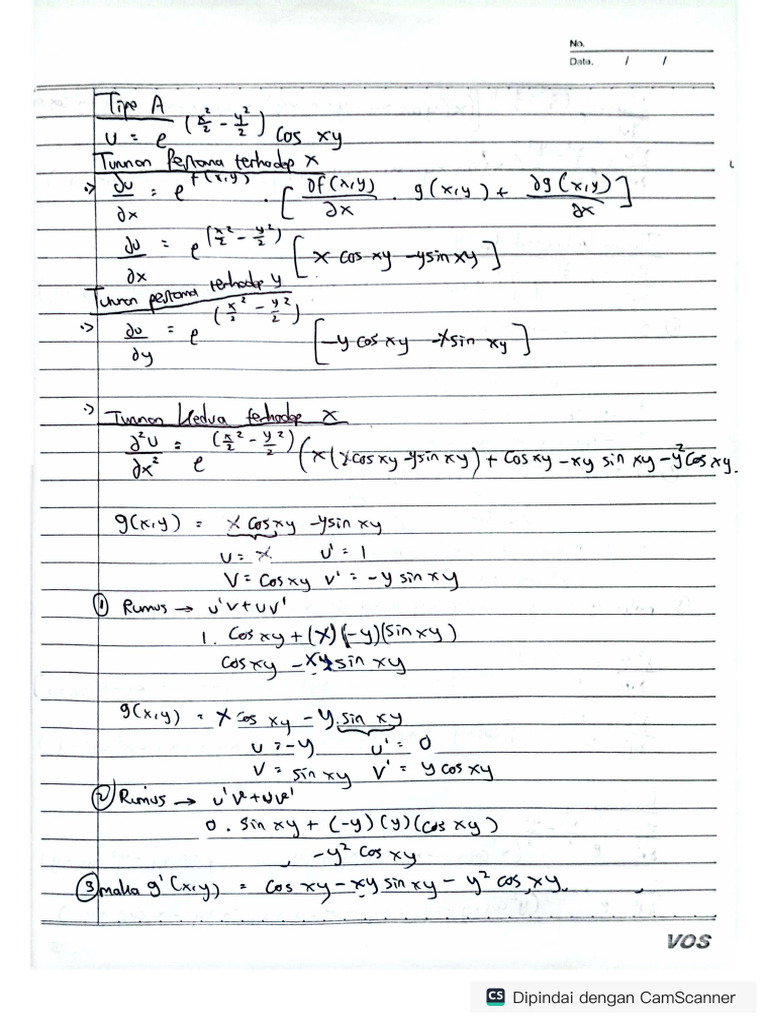 No.
Date. / /
Tipe A
U = e^(x²/2 - y²/2) cos xy
Turunan Pertama terhadap x
=> ∂u/∂x = e^f(x,y) . [∂f(x,y)/∂x . g(x,y) + ∂g(x,y)/∂x]
∂u/∂x = e^(x²/2 - y²/2) [x cos xy - y sin xy]
Turunan pertama terhadap y
=> ∂u/∂y = e^(x²/2 - y²/2) [-y cos xy - x sin xy]
=> Turunan Kedua terhadap x
∂²U/∂x² = e^(x²/2 - y²/2) (x(x cos xy - y sin xy) + cos xy - xy sin xy - y² cos xy.
g(x,y) = x cos xy - y sin xy
U = x U' = 1
V = cos xy V' = -y sin xy
① Rumus → u'v + uv'
1. cos xy + (x)(-y)(sin xy)
cos xy - xy sin xy
g(x,y) = x cos xy - y. sin xy
U = -y U' = 0
V = sin xy V' = y cos xy
② Rumus → u'v + uv'
0 . sin xy + (-y)(y)(cos xy)
-y² cos xy
③ maka g'(x,y) = cos xy - xy sin xy - y² cos xy.
VOS
CS Dipindai dengan CamScanner